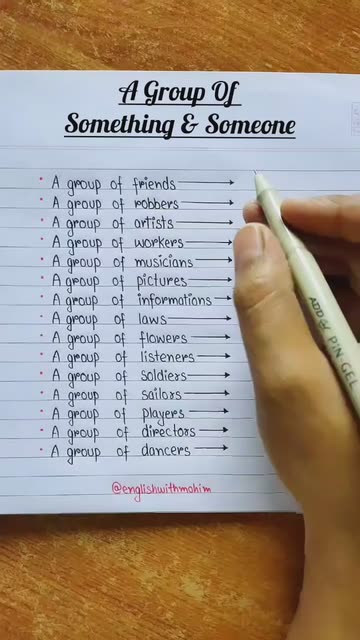 A Group Of
Something & Someone
• A group of friends →
• A group of robbers →
• A group of artists →
• A group of workers →
• A group of musicians →
• A group of pictures →
• A group of informations →
• A group of laws →
• A group of flowers →
• A group of listeners →
• A group of soldiers →
• A group of sailors →
• A group of players →
• A group of directors →
• A group of dancers →
@englishwithmohim
ADD PIN GEL